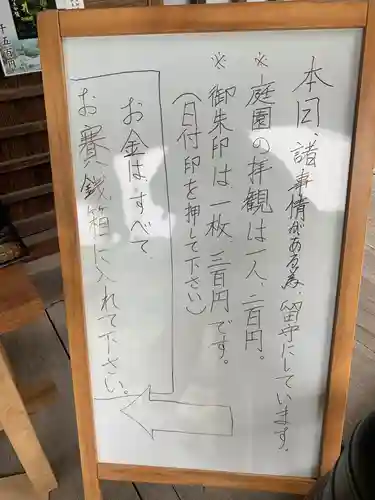 本日、諸事情がある為、留守にしています。
※庭園の拝観は一人、二百円。
※御朱印は一枚、三百円です。
（日付印を押して下さい）
お金はすべて、
お賽銭箱に入れて下さい。